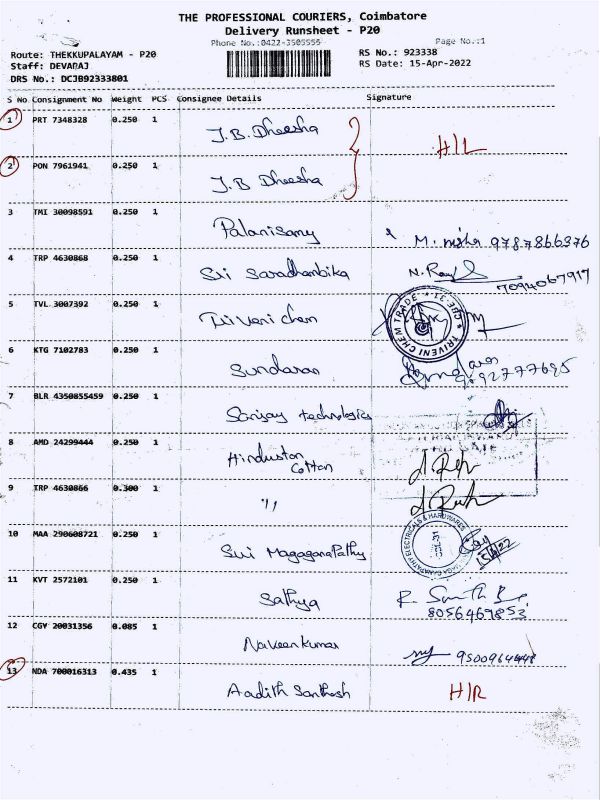 THE PROFESSIONAL COURIERS, Coimbatore
Delivery Runsheet - P20
Phone No.:0422-3505555
Page No.:1
Route: THEKKUPALAYAM - P20
RS No.: 923338
Staff: DEVARAJ
RS Date: 15-Apr-2022
DRS No.: DCJB92333801
S No Consignment No Weight PCS Consignee Details Signature
1 PRT 7348328 0.250 1 J.B. Dheesha H/L
2 PON 7961941 0.250 1 J.B Dheesha
3 TMI 30098591 0.250 1 Palanisamy M. nisha 9787866376
4 TRP 4630868 0.250 1 Sri Saradhanbika N. 7094067917
5 TVL 3007392 0.250 1 Triveni chem TRIVENI CHEM TRADE CBE-31
6 KTG 7102783 0.250 1 Sundaran
7 BLR 4350855459 0.250 1 Sanjay technologies
8 AMD 24299444 0.250 1 Hinduston Cotton
9 TRP 4630866 0.300 1 "
10 MAA 290608721 0.250 1 Sri Magaganapathy ELECTRICALS & HARDWARES 15/4/22
11 KVT 2572101 0.250 1 Sathya 8056469853
12 CGV 20031356 0.085 1 Naveenkumar 9500964448
13 NDA 700016313 0.435 1 Aadith Santhosh H/R